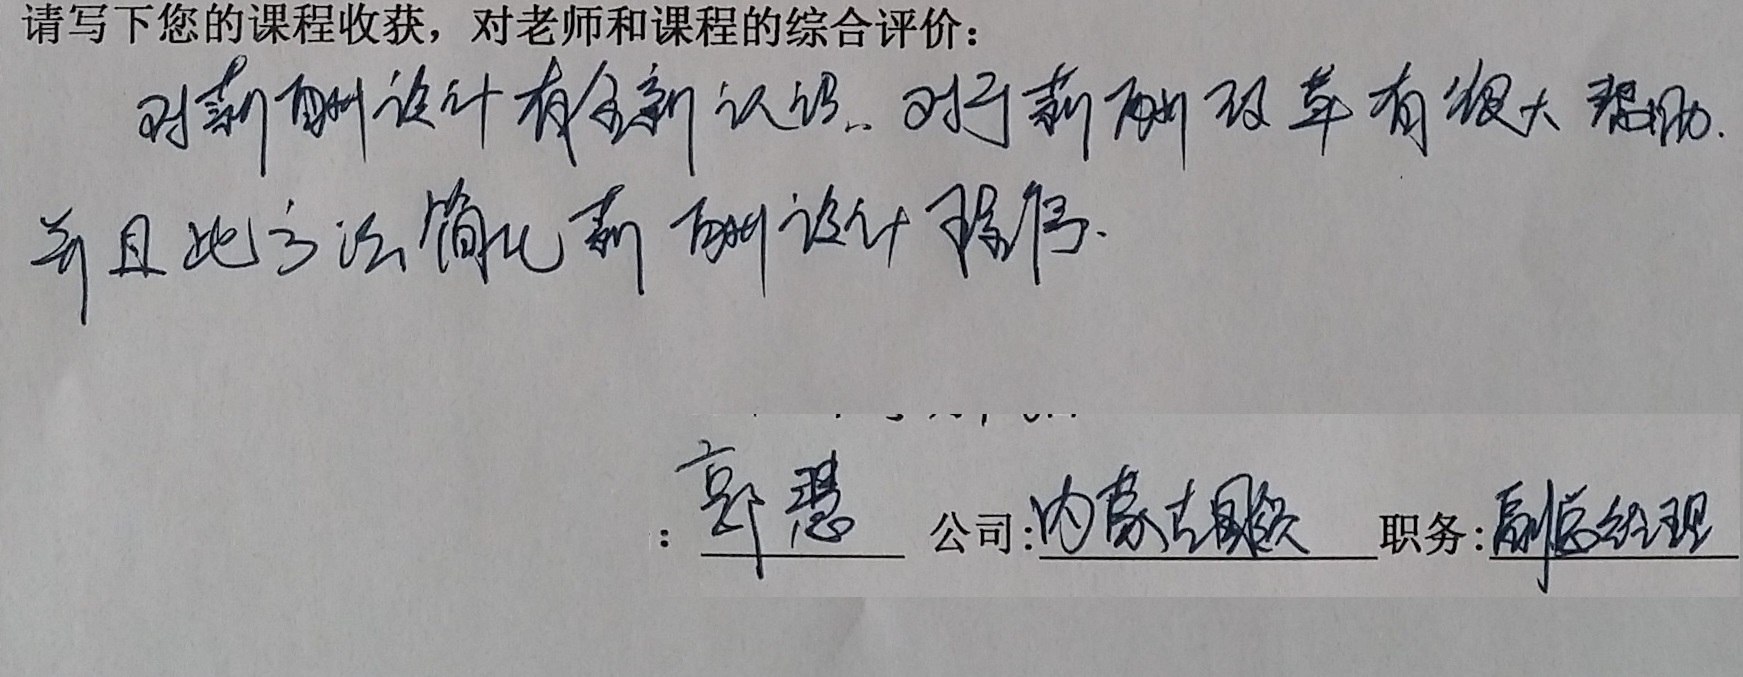 请写下您的课程收获，对老师和课程的综合评价：
对薪酬设计有全新认识.. 对于薪酬改革有很大帮助.
并且此方法简化薪酬设计程序.
: 郭慧 公司:内蒙古 职务:副总经理